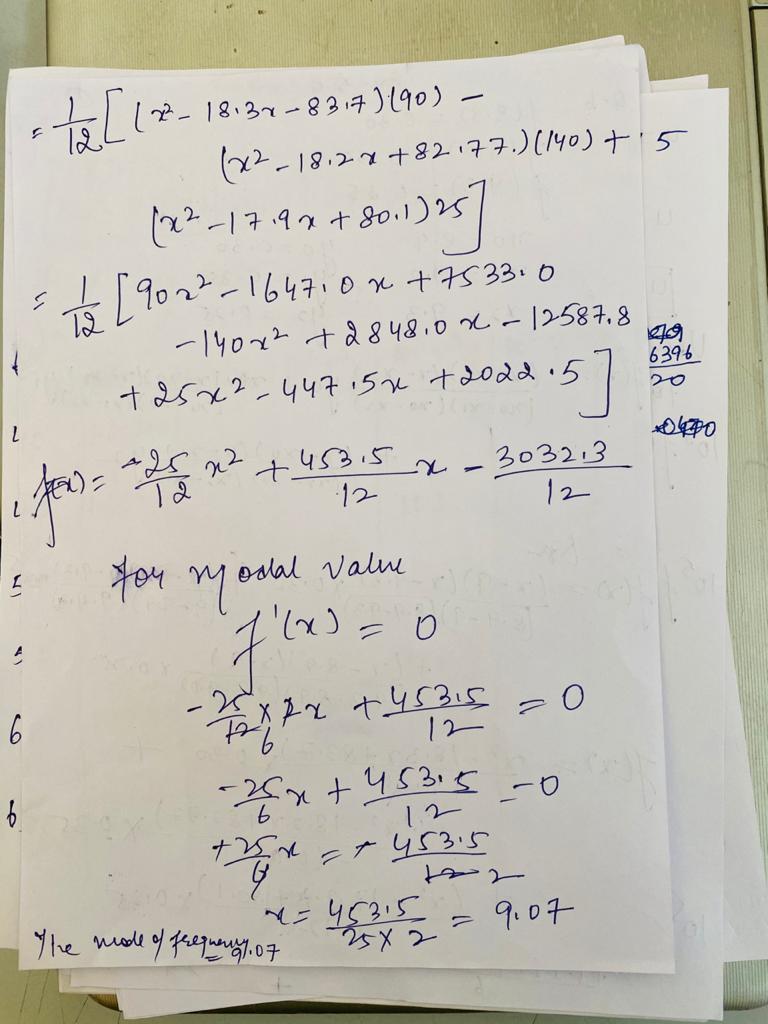 = 1/12 [ (x² - 18.3x - 83.7)(90) -
(x² - 18.2x + 82.77.)(140) + 5
(x² - 17.9x + 80.1) 25 ]
= 1/12 [ 90x² - 1647.0x + 7533.0
- 140x² + 2848.0x - 12587.8
+ 25x² - 447.5x + 2022.5 ]
6396
20
f(x) = -25/12 x² + 453.5/12 x - 3032.3/12
for modal value
f'(x) = 0
-25/12 × 2x + 453.5/12 = 0
6
-25/6 x + 453.5/12 = 0
+25/6 x = + 453.5/12 2
x = 453.5/25×2 = 9.07
The mode of frequency = 9.07